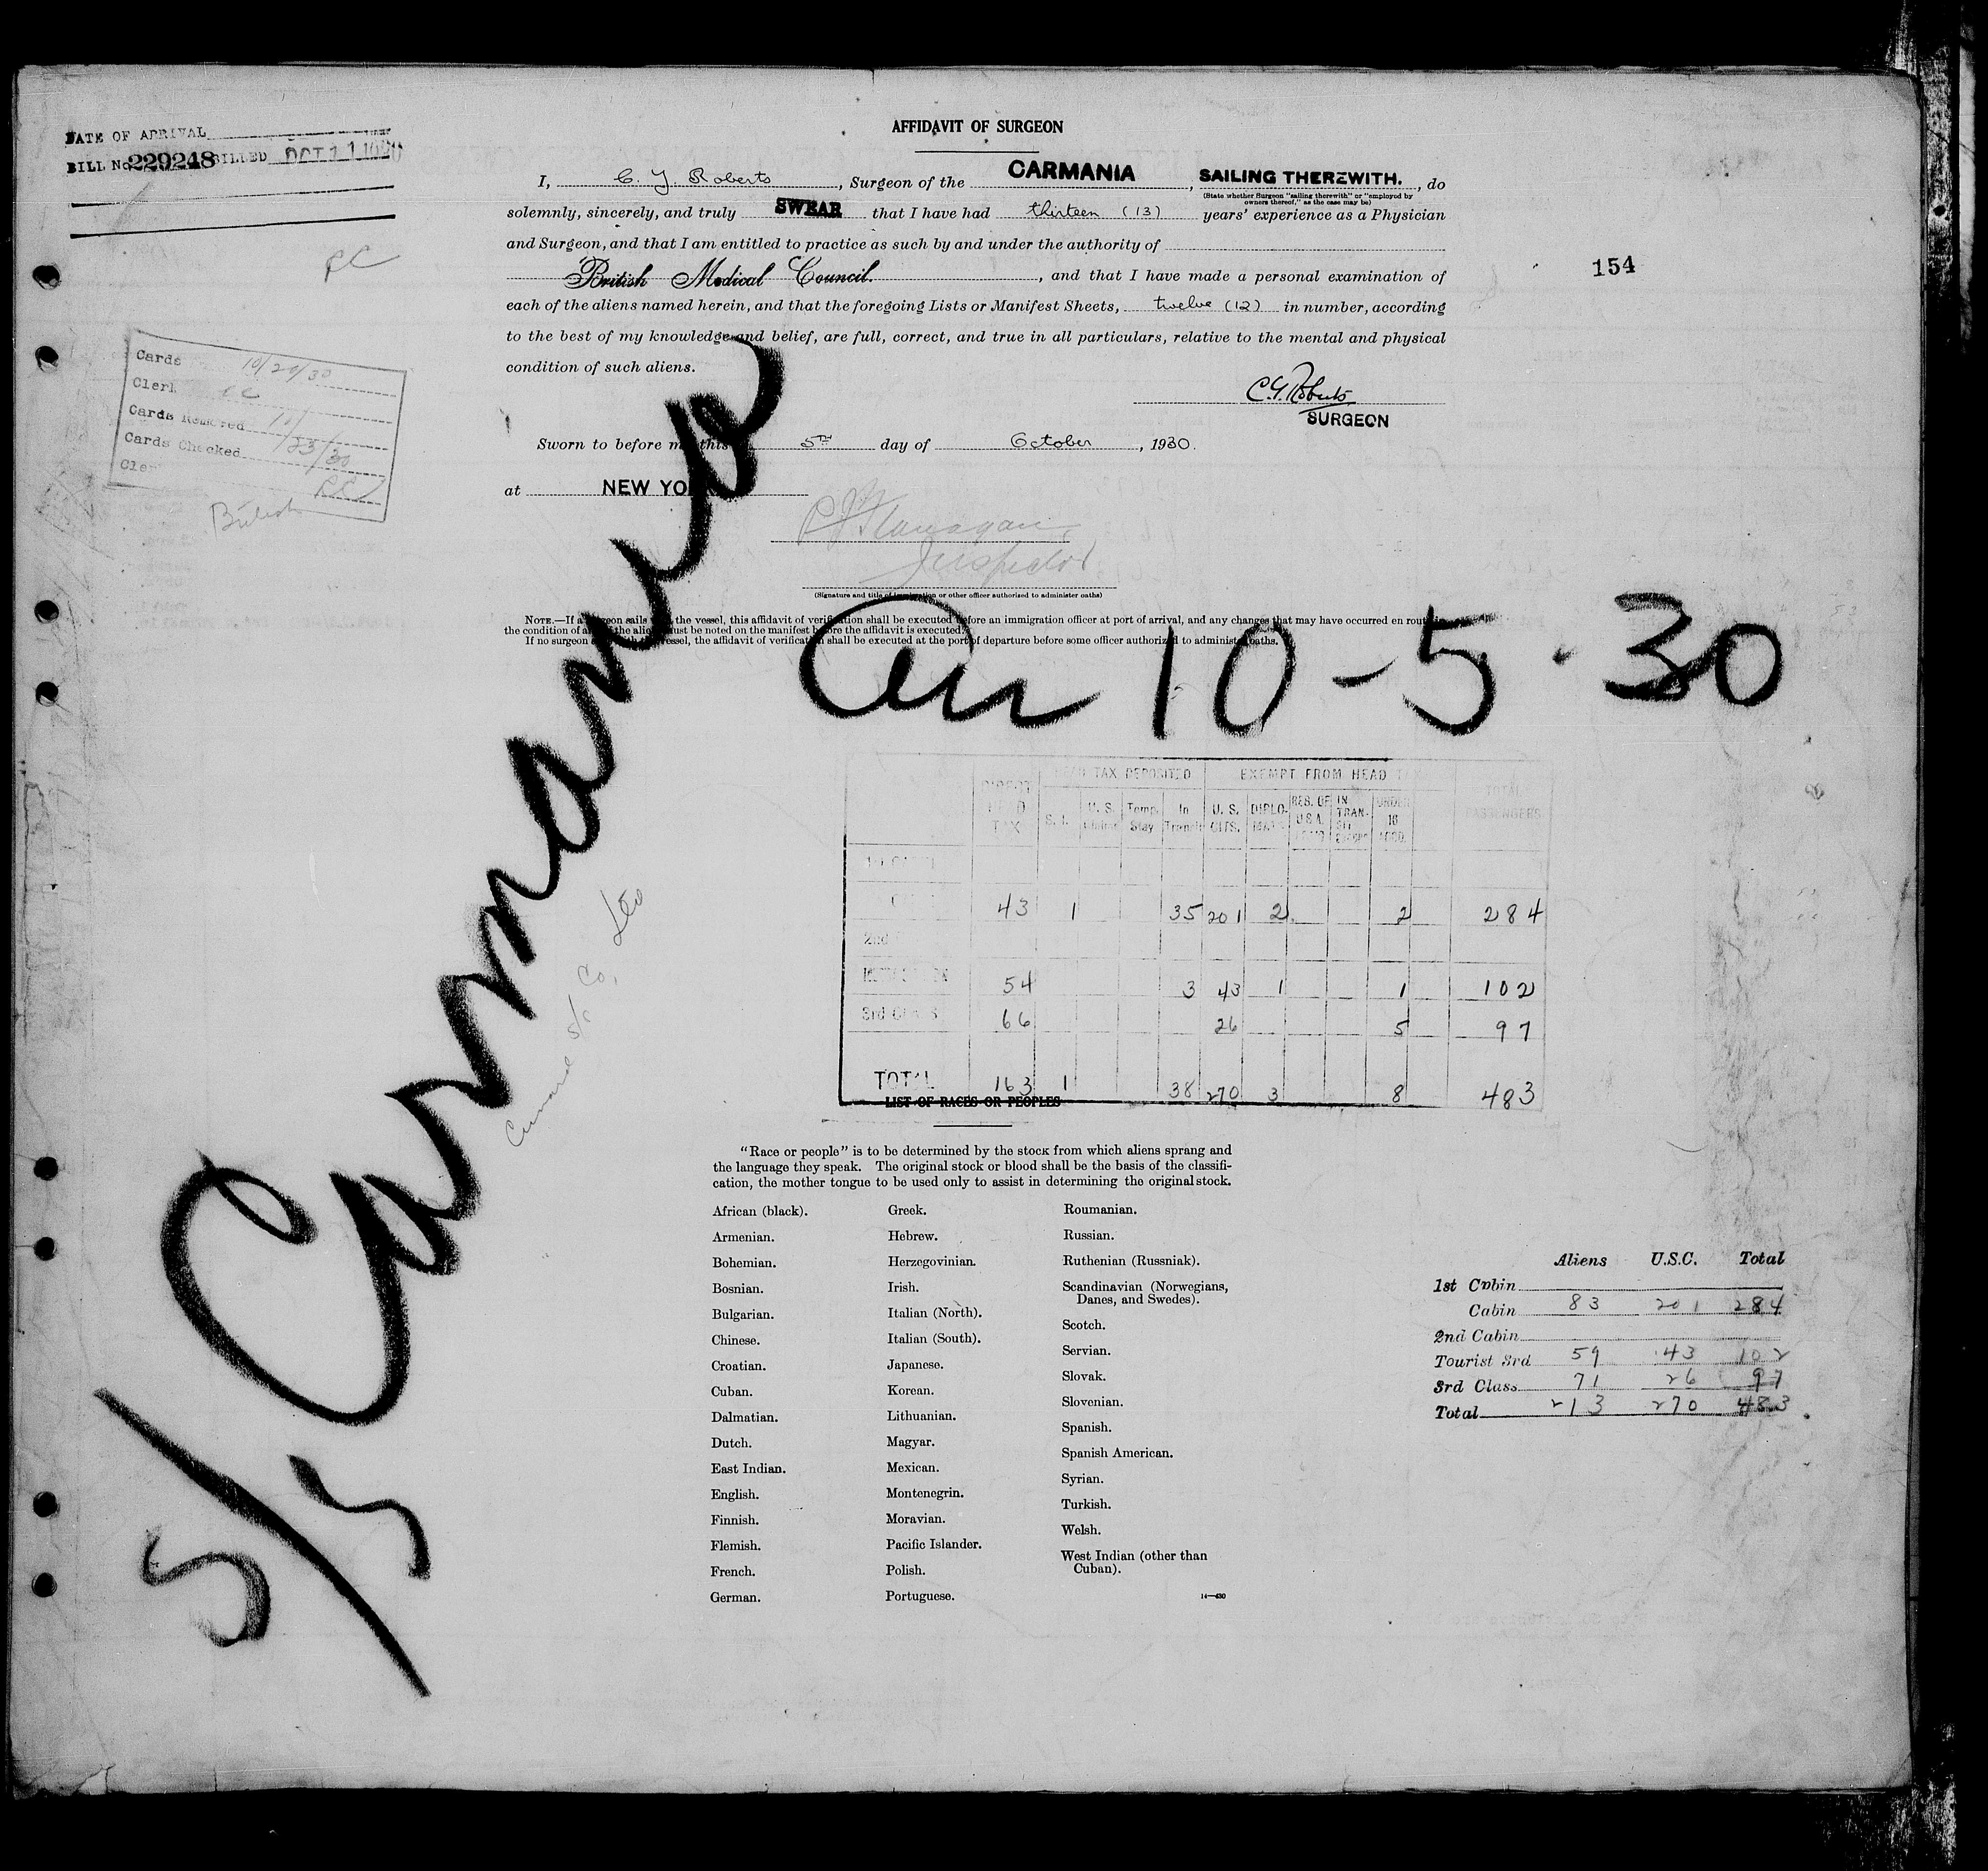 DATE OF ARRIVAL
BILL No. 229248 BILLED OCT 11 1930
RC
Cards 10/20/30
Clerk
Cards Removed
Cards Checked 10/23/30
Clerk
British
AFFIDAVIT OF SURGEON
I, C. Y. Roberts, Surgeon of the CARMANIA, SAILING THEREWITH., do
(State whether Surgeon "sailing therewith" or "employed by
owners thereof," as the case may be)
solemnly, sincerely, and truly SWEAR that I have had thirteen (13) years' experience as a Physician
and Surgeon, and that I am entitled to practice as such by and under the authority of
British Medical Council., and that I have made a personal examination of
154
each of the aliens named herein, and that the foregoing Lists or Manifest Sheets, twelve (12) in number, according
to the best of my knowledge and belief, are full, correct, and true in all particulars, relative to the mental and physical
condition of such aliens.
C.Y. Roberts
SURGEON
Sworn to before me this 5th day of October, 1930.
at NEW YORK
Flanagan
Inspector
(Signature and title of immigration or other officer authorized to administer oaths)
NOTE.—If a surgeon sails with the vessel, this affidavit of verification shall be executed before an immigration officer at port of arrival, and any changes that may have occurred en route in
the condition of any of the aliens must be noted on the manifest before the affidavit is executed.
If no surgeon sails with the vessel, the affidavit of verification shall be executed at the port of departure before some officer authorized to administer oaths.
S/S Carmania
Arr 10-5-30
Cunard S/S Co, Ltd
DIRECT HEAD TAX HEAD TAX DEPOSITED EXEMPT FROM HEAD TAX TOTAL PASSENGERS
S. I. U. S. Temp. Stay In Transit U. S. CITS. DIPLOMATS RES. OF U.S.A. IN TRANSIT UNDER 16 ACCD.
43 1 35 201 2 2 284
2nd
54 3 43 1 1 102
3rd CLASS 66 26 5 97
TOTAL 163 1 38 270 3 8 483
LIST OF RACES OR PEOPLES
"Race or people" is to be determined by the stock from which aliens sprang and
the language they speak. The original stock or blood shall be the basis of the classifi-
cation, the mother tongue to be used only to assist in determining the original stock.
African (black).
Armenian.
Bohemian.
Bosnian.
Bulgarian.
Chinese.
Croatian.
Cuban.
Dalmatian.
Dutch.
East Indian.
English.
Finnish.
Flemish.
French.
German.
Greek.
Hebrew.
Herzegovinian.
Irish.
Italian (North).
Italian (South).
Japanese.
Korean.
Lithuanian.
Magyar.
Mexican.
Montenegrin.
Moravian.
Pacific Islander.
Polish.
Portuguese.
Roumanian.
Russian.
Ruthenian (Russniak).
Scandinavian (Norwegians,
Danes, and Swedes).
Scotch.
Servian.
Slovak.
Slovenian.
Spanish.
Spanish American.
Syrian.
Turkish.
Welsh.
West Indian (other than
Cuban).
14—430
Aliens U.S.C. Total
1st Cabin
Cabin 83 201 284
2nd Cabin
Tourist 3rd 59 43 102
3rd Class 71 26 97
Total 213 270 483